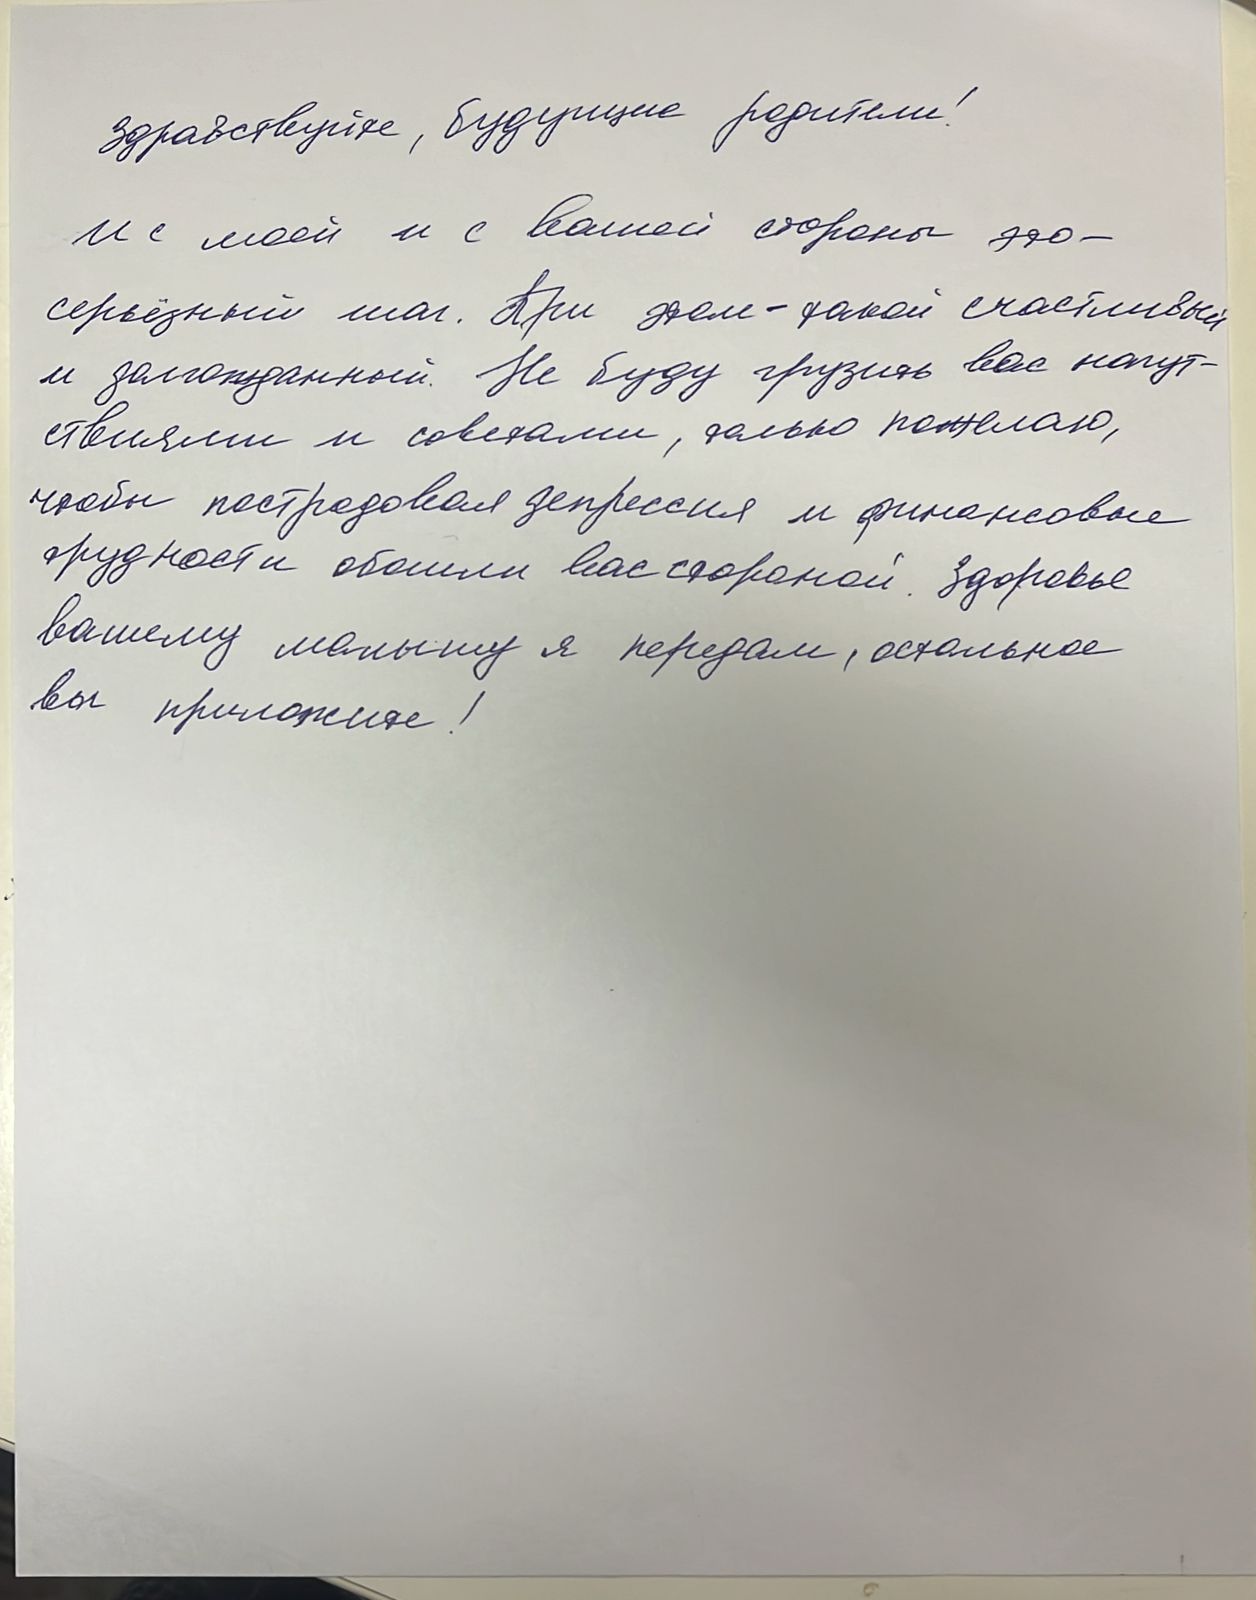 Здравствуйте, будущие родители!
И с моей и с вашей стороны это –
серьёзный шаг. При этом – такой счастливый
и долгожданный. Не буду грузить вас напут-
ствиями и советами, только пожелаю,
чтобы постродовая депрессия и финансовые
трудности обошли вас стороной. Здоровье
вашему малышу я передам, остальное
вы приложите!